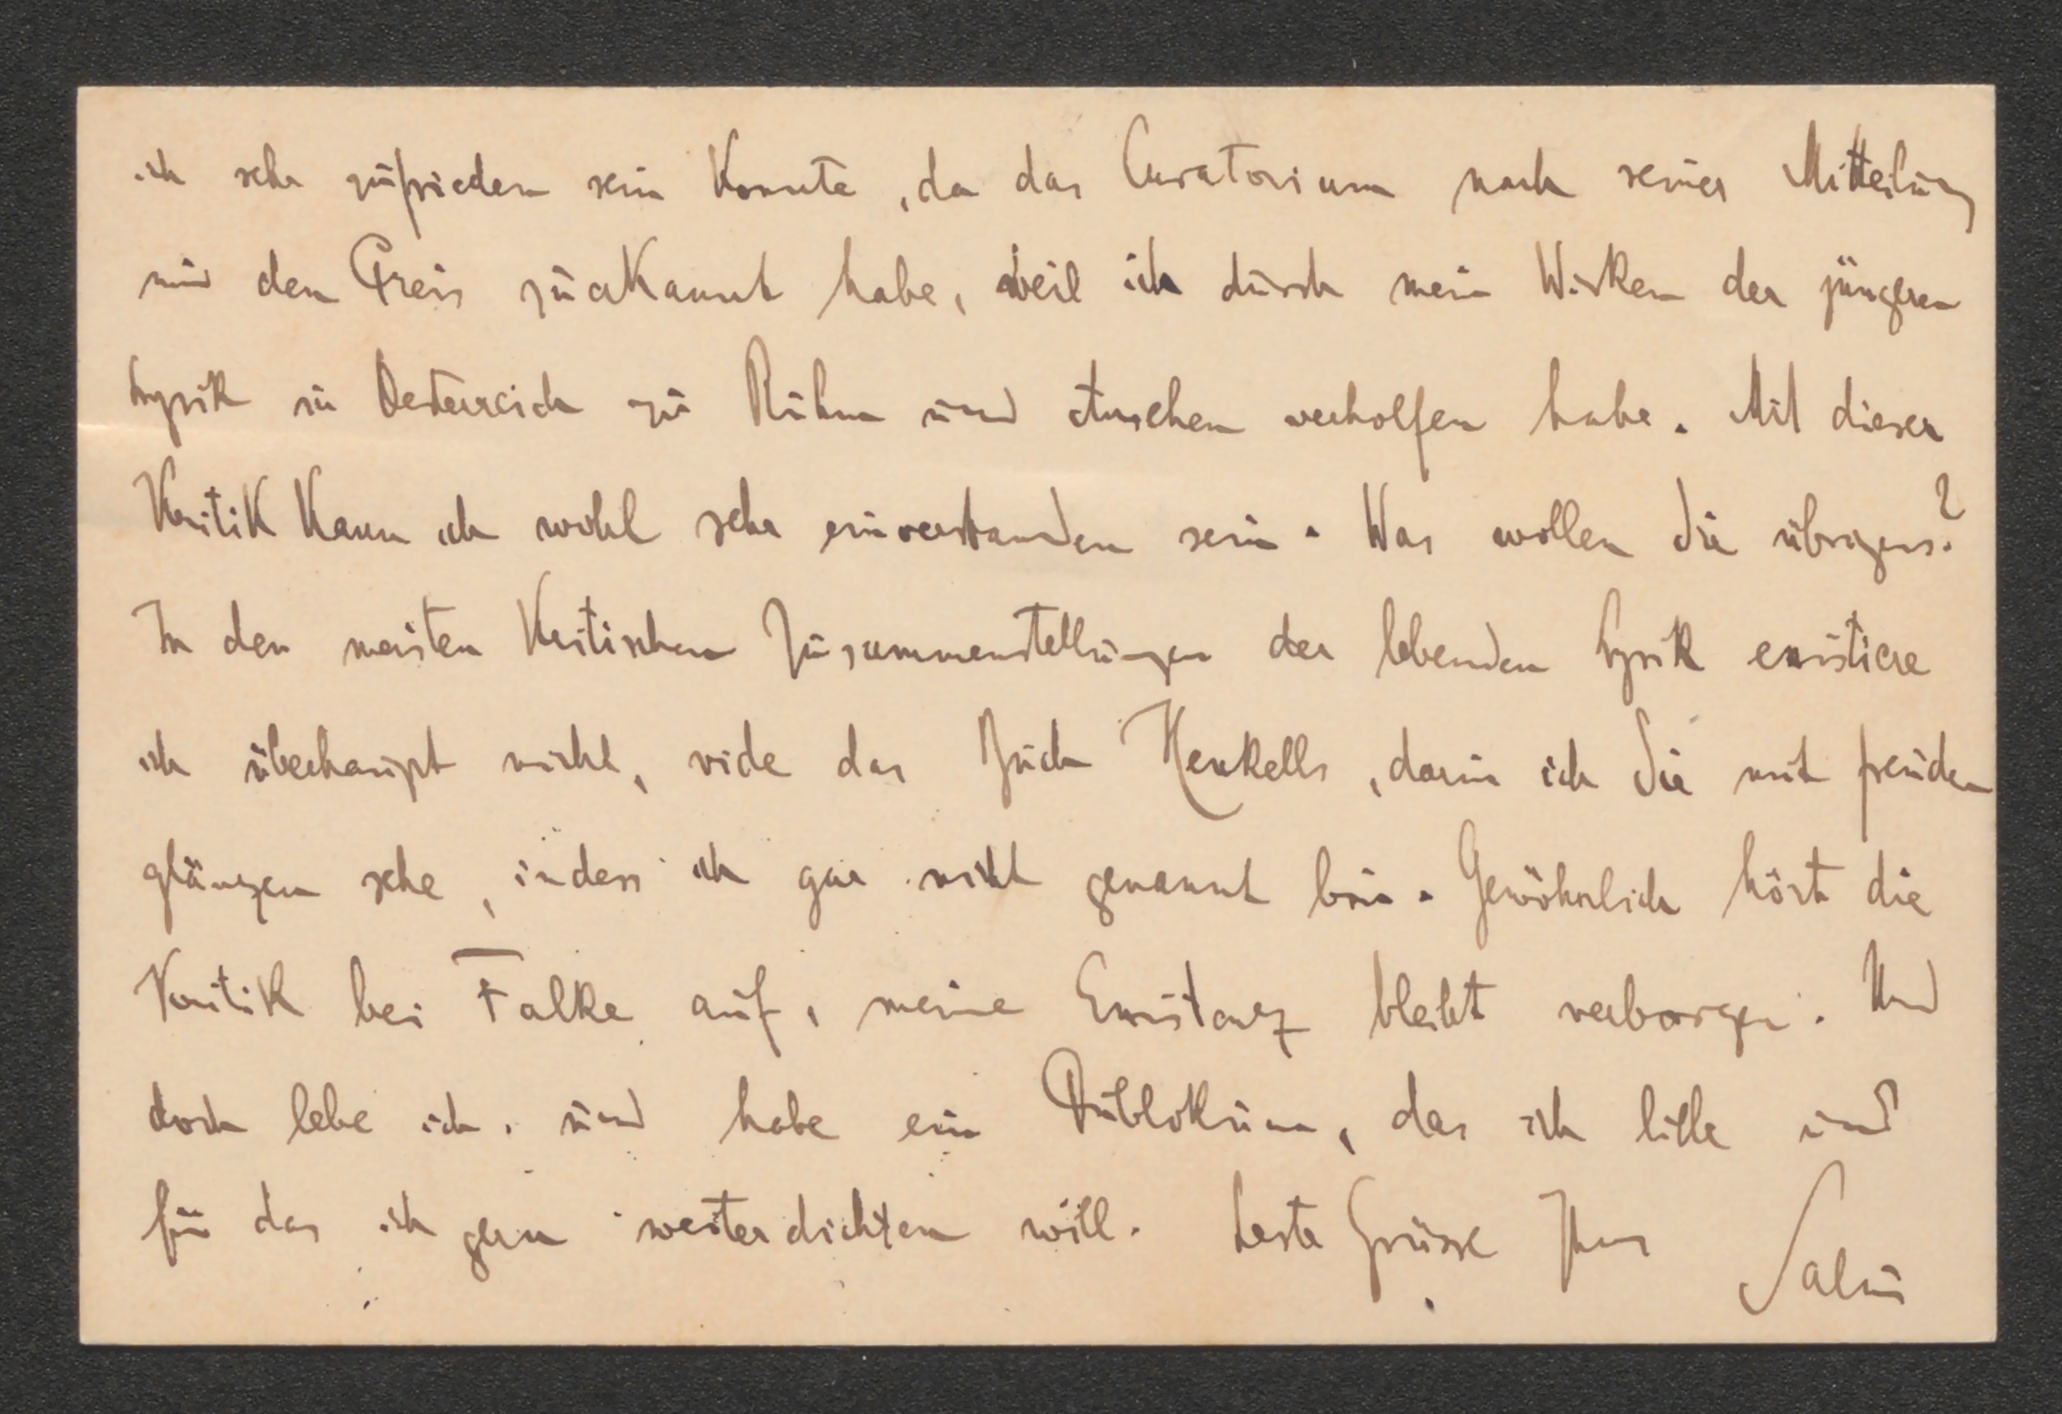 ich sehr zufrieden sein konnte, da das Curatorium nach seiner Mitteilung
mir den Preis zuerkannt habe, weil ich durch mein Wirken der jüngeren
Lyrik in Oesterreich zu Ruhm und Ansehen verholfen habe. Mit dieser
Kritik kann ich wohl sehr einverstanden sein. Was wollen Sie übrigens?
In den meisten kritischen Zusammenstellungen der lebenden Lyrik existiere
ich überhaupt nicht, vide das Buch Henkells, darin ich Sie mit freuden
glänzen sehe, indess ich gar nicht genannt bin. Gewöhnlich hört die
Kritik bei Falke auf, meine Existenz bleibt verborgen. Und
doch lebe ich. und habe ein Publikum, das ich liebe und
für das ich gern weiterdichten will. beste Grüsse Ihres
Salus